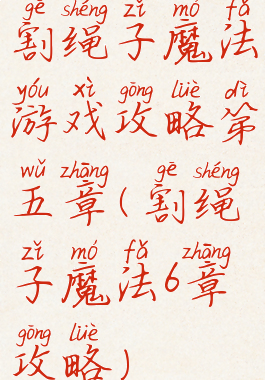 gē shéng zǐ mó fǎ
割绳子魔法
yóu xì gōng lüè dì
游戏攻略第
wǔ zhāng gē shéng
五章(割绳
zǐ mó fǎ zhāng
子魔法6章
gōng lüè
攻略)